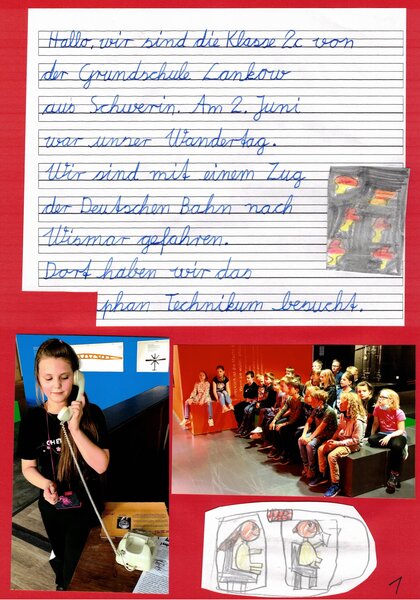 Hallo, wir sind die Klasse 2c von
der Grundschule Lankow
aus Schwerin. Am 2. Juni
war unser Wandertag.
Wir sind mit einem Zug
der Deutschen Bahn nach
Wismar gefahren.
Dort haben wir das
phan Technikum besucht.
1